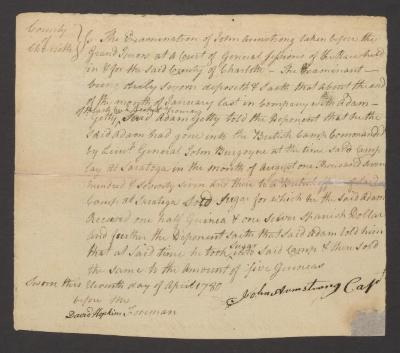 County of Charlotte } ss. The Examination of John Armstrong taken before the
Grand Jurors at a Court of General Sessions of the Peace held
in & for the said County of Charlotte — The Examinant —
being duly Sworn deposeth & Saith that about the end
of the month of January last in Company with Adam
Getty Said Adam Getty told the Deponent that he the
Said Adam had gone into the British Camp Commanded
by Lieut General John Burgoyne at the time said Camp
lay at Saratoga in the month of August one Thousand
hundred & Seventy Seven and there to a British
Camp at Saratoga Sold Sugar for which he the said Adam
Received one half Guinea & one Silver Spanish Dollar
and further the Deponent saith that Said Adam told him
that at Said time he took Sugar into Said Camp & then Sold
the Same to the Amount of five Guineas
Sworn this day of April 1780
before me John Armstrong Capt
David Hopkins Foreman